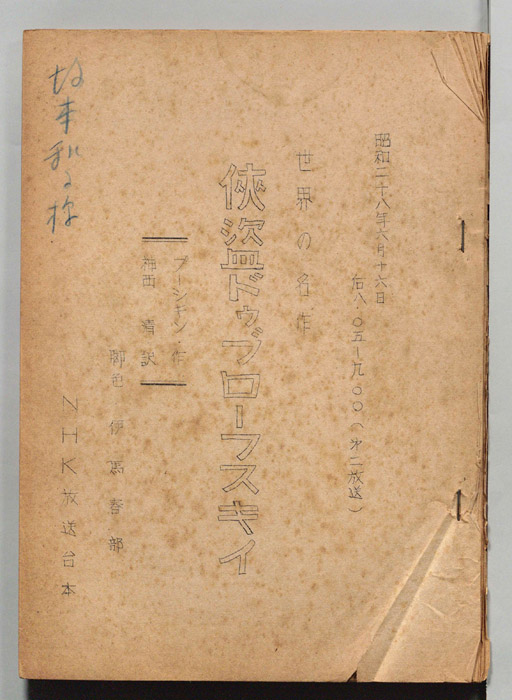 昭和二十八年六月十六日
后八・〇五―九〇〇(第二放送)
世界の名作
俠盗ドゥブローフスキイ
プーシキン・作
神西清訳
脚色 伊馬春部
NHK放送台本
坂本和子様